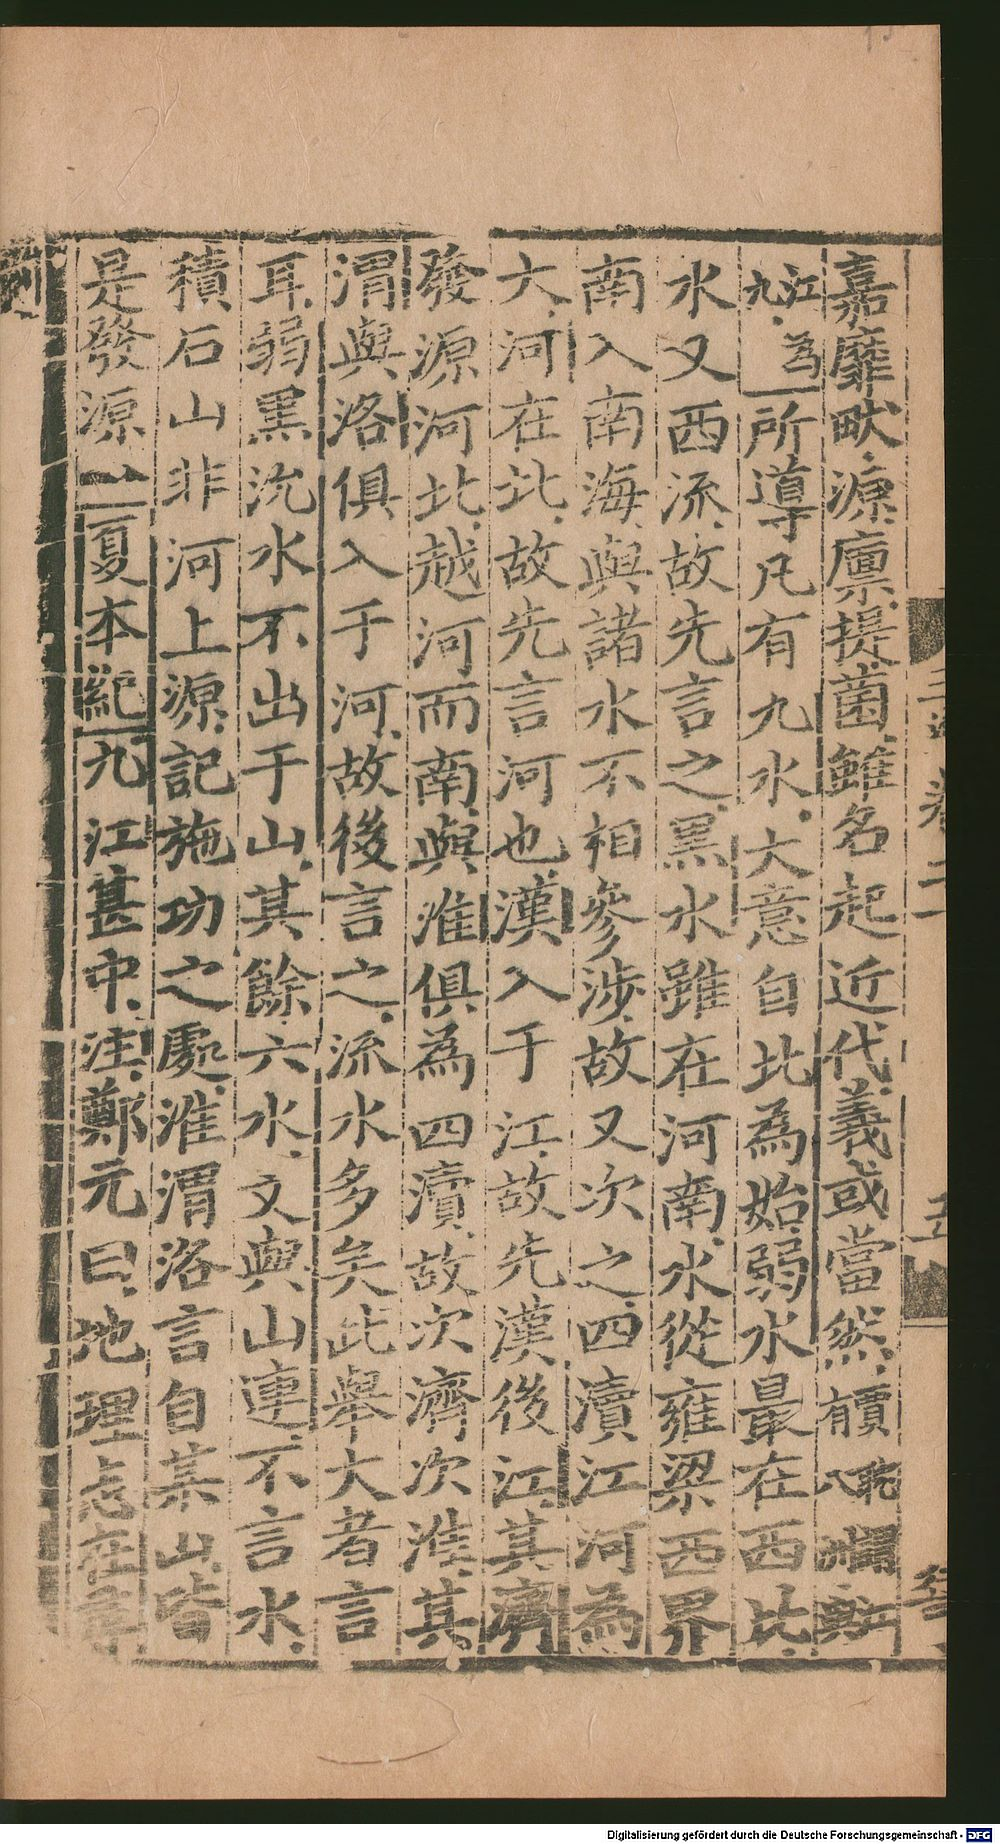 嘉靡畎源廩提菌雖名起近代義或當然
江為九
所導凡有九水大意自北為始弱水最在西北
水又西流故先言之黑水雖在河南水從雍梁西界
南入南海與諸水不相參涉故又次之四瀆江河為
大河在北故先言河也漢入于江故先漢後江其濟
發源河北越河而南與淮俱為四瀆故次濟次淮其
渭與洛俱入于河故後言之流水多矣此舉大者言
耳弱黑沇水不出于山其餘六水文與山連不言水
積石山非河上源記施功之處淮渭洛言自某山皆
是發源
夏本紀九江甚中注鄭元曰地理志在
卷二
Digitalisierung gefördert durch die Deutsche Forschungsgemeinschaft - DFG